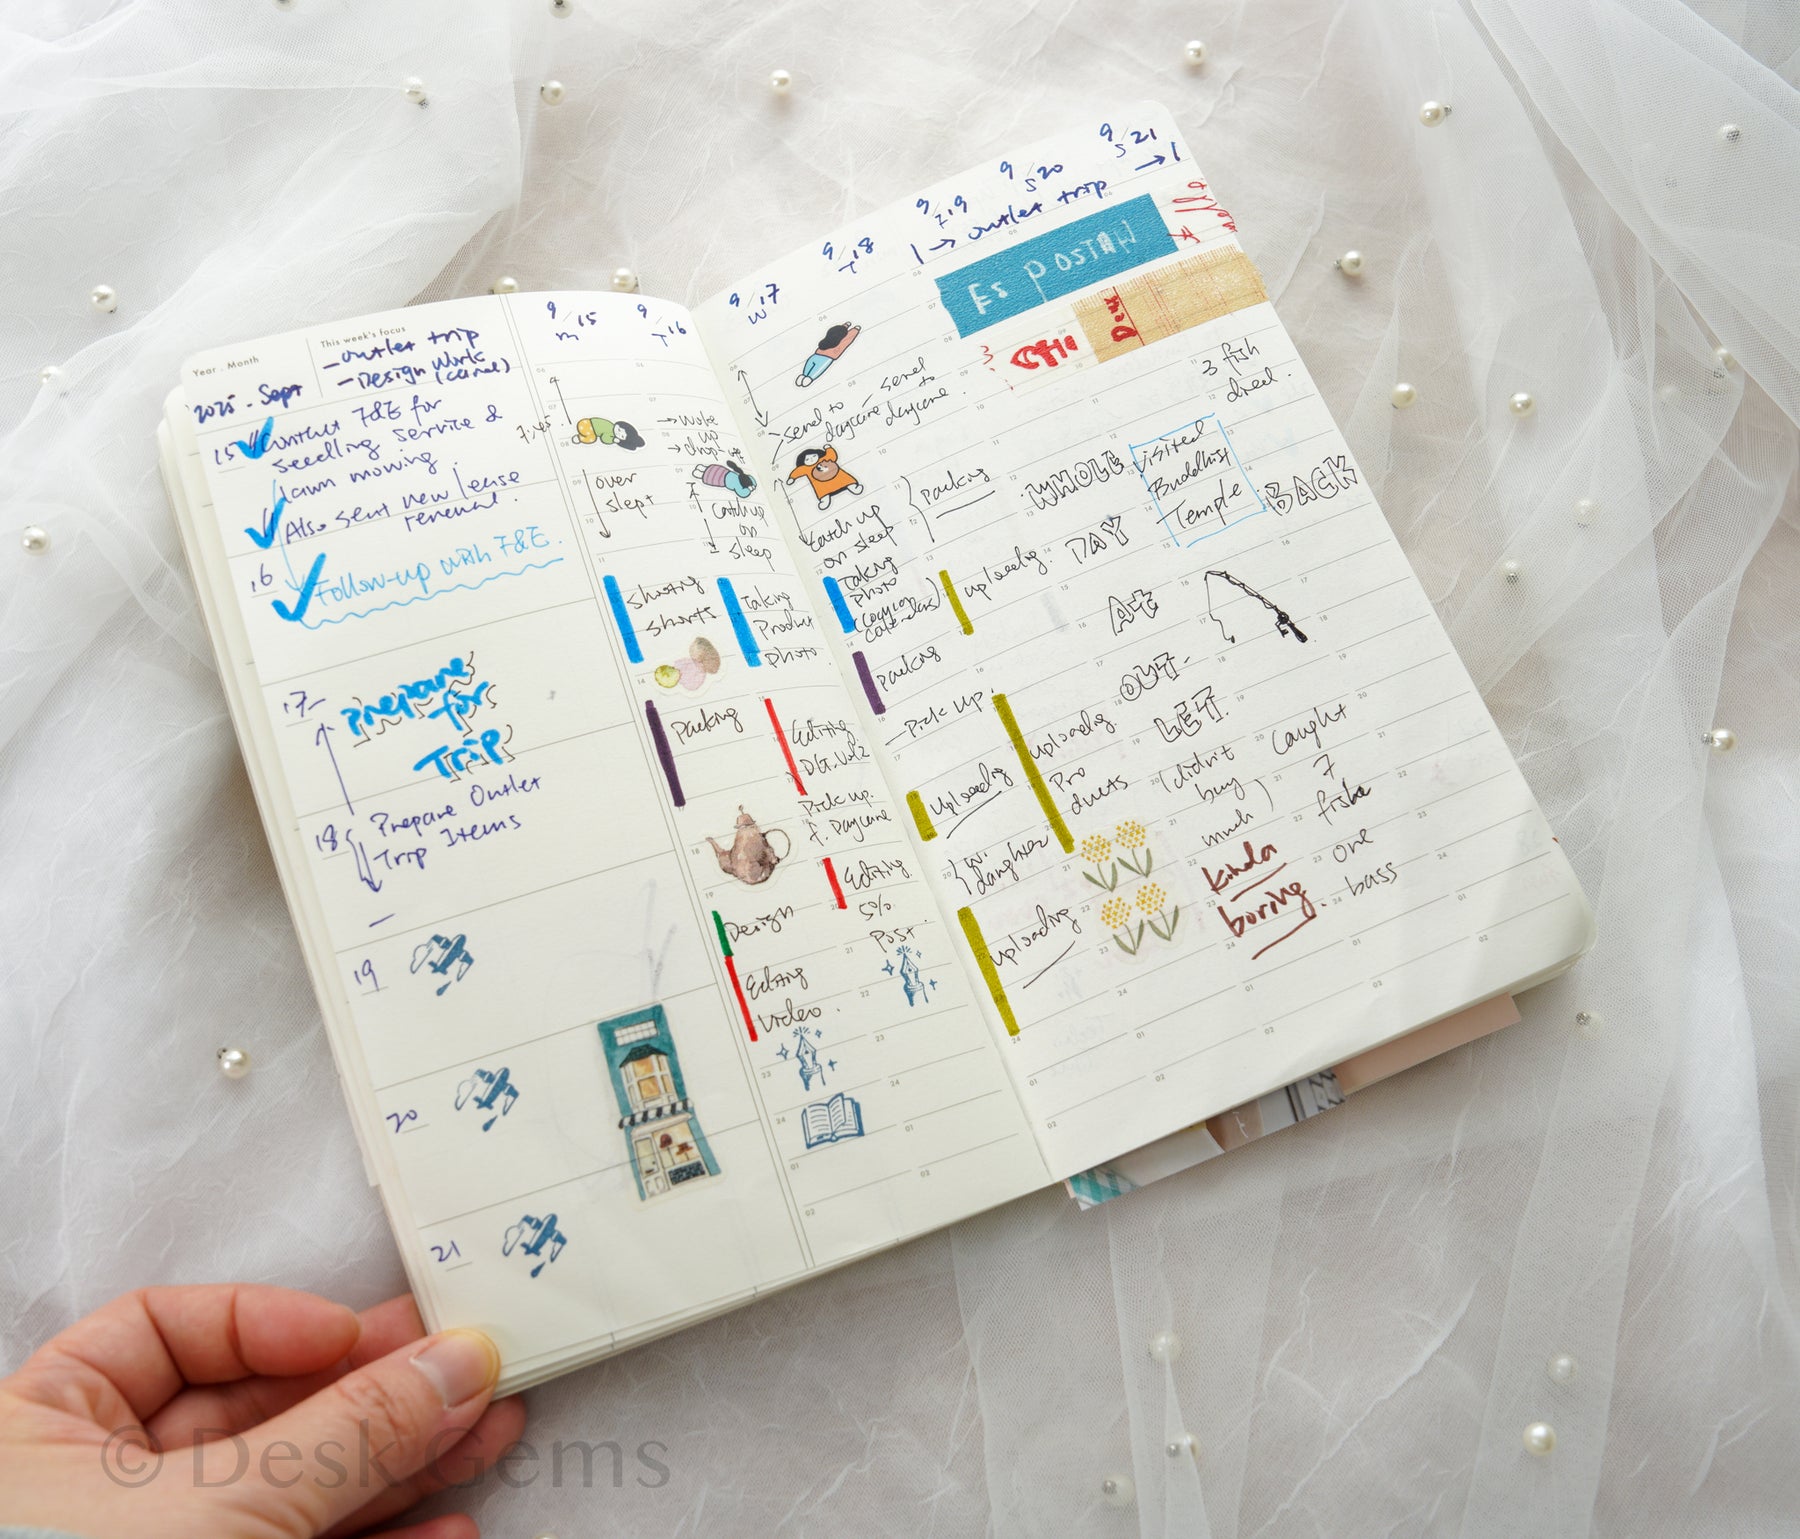 Year . Month
This week's focus
2025 . Sept
- outlet trip
- Design Work
15
Contact F&E for
seedling service &
lawn mowing.
Also sent new lease
renewal.
16
Follow-up with F&E.
17
Prepare
for
Trip
18
Prepare Outlet
Trip Items
19
20
21
9/15
M
7:45
over
slept
shooting
shorts
Packing
Design
Editing
video
9/16
T
→ woke
up
Catch up
on
sleep
Taking
Product
photo
Editing
Pick up
f. Daycare
Editing
5%
Post
9/17
W
send to
daycare
Catch up
on sleep
Taking
photo
Packing
Pick up
uploading
w.
daughter
uploading
9/18
T
send
to
daycare
Packing
uploading.
uploading
Pro
ducts
9/19
F
→ outlet trip →
9/20
S
9/21
S
WHOLE
DAY
AT
OUT-
LET
(didn't
buy
much)
kinda
boring.
3 fish
died.
visited
Buddhist
Temple
BACK
caught
7
fishe
one
bass
© Desk Gems